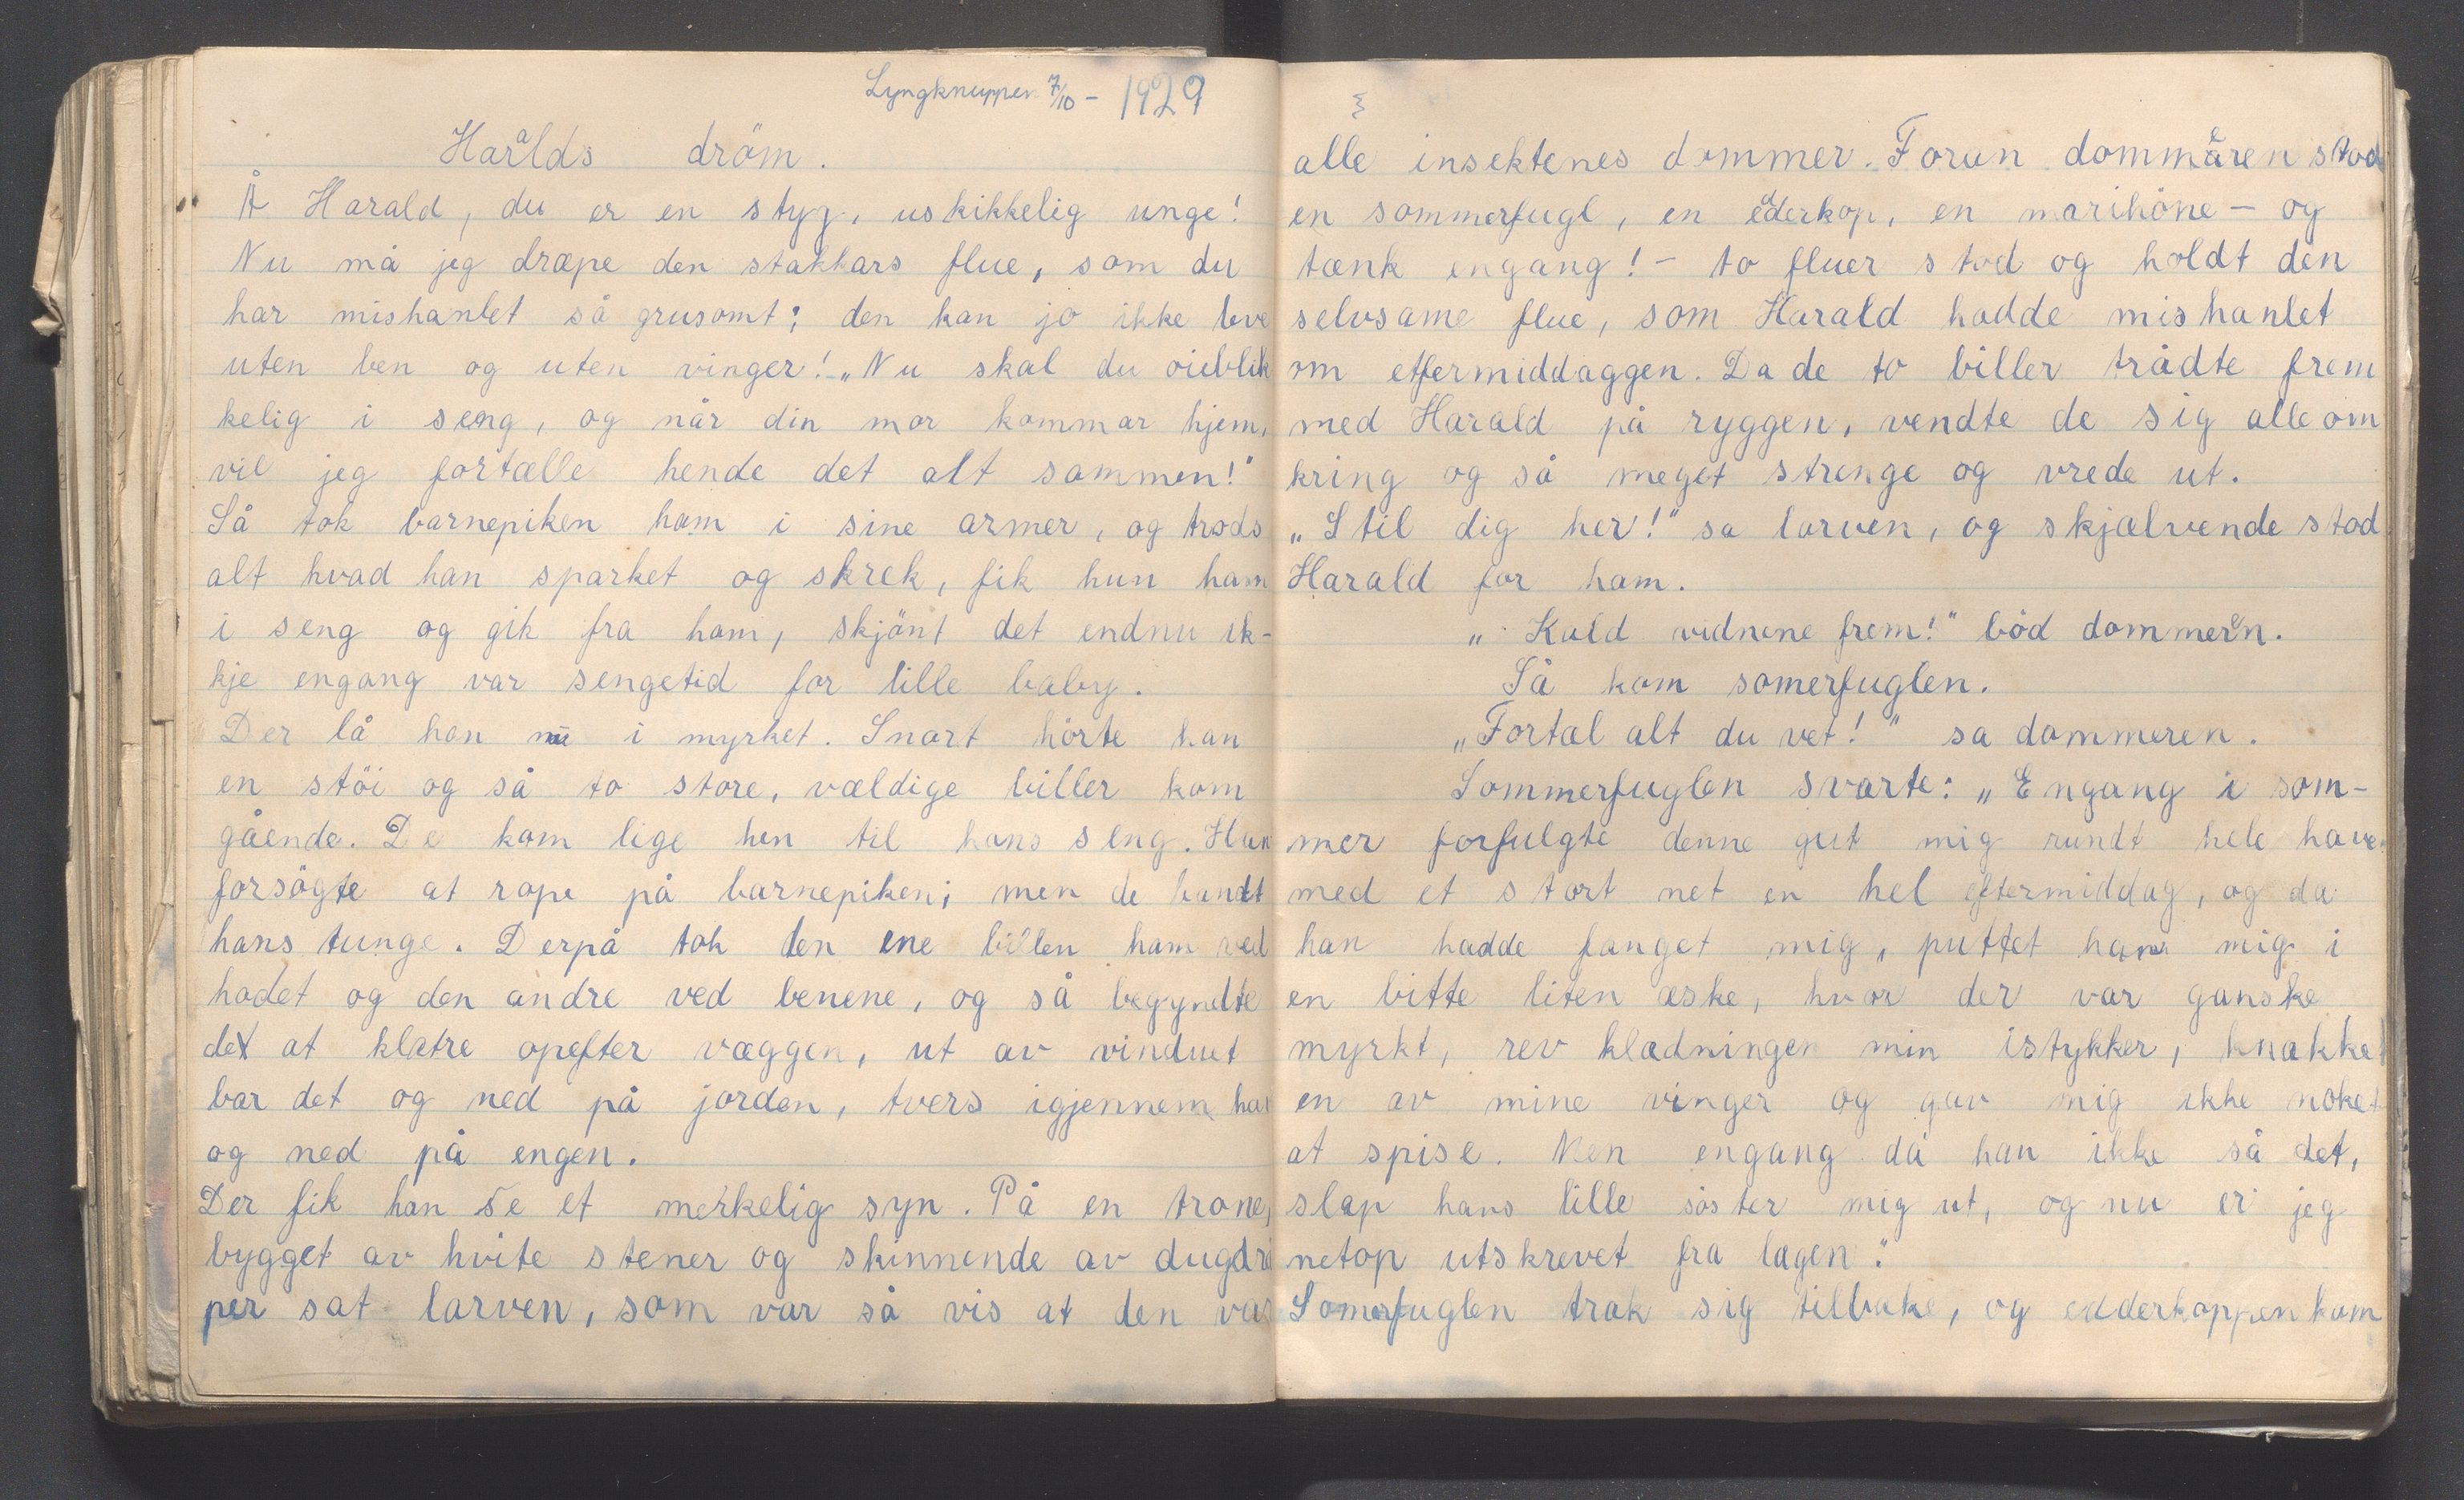 Lyngknuppen 7/10 - 1929
Haralds dröm.
Å Harald, du er en styg, uskikkelig unge!
Nu må jeg dræpe den stakkars flue, som du
har mishanlet så grusomt; den kan jo ikke leve
uten ben og uten vinger! „Nu skal du oieblik
kelig i seng, og når din mor kommar hjem,
vil jeg fortælle hende det alt sammen!"
Så tok barnepiken ham i sine armer, og trods
alt hvad han sparket og skrek, fik hun ham
i seng og gik fra ham, skjönt det endnu ik-
kje engang var sengetid for lille baby.
Der lå han nu i myrket. Snart hörte han
en stöi og så to store, vældige biller kom
gående. De kom lige hen til hans seng. Han
forsögte at rope på barnepiken; men de bandt
hans tunge. Derpå tok den ene billen ham ved
hodet og den andre ved benene, og så begyndte
det at klatre opefter væggen, ut av vinduet
bar det og ned på jorden, tvers igjennem hav
og ned på engen.
Der fik han se et merkelig syn. På en trone,
bygget av hvite stener og skinnende av dugdrå
per sat larven, som var så vis at den var
alle insektenes dommer. Foran dommeren stod
en sommerfugl, en ederkop, en marihöne - og
tænk engang! - to fluer stod og holdt den
selvsame flue, som Harald hadde mishanlet
om eftermiddaggen. Da de to biller trådte frem
med Harald på ryggen, vendte de sig alle om
kring og så meget strenge og vrede ut.
„Stil dig her!" sa larven, og skjælvende stod
Harald for ham.
„Kald vidnene frem!" böd dommern.
Så kom somerfuglen.
„Fortæl alt du vet!" sa dommeren.
Sommerfuglen svarte: „Engang i som-
mer forfulgte denne gut mig rundt hele haven
med et stort net en hel eftermiddag, og da
han hadde fanget mig, puttet han mig i
en bitte liten æske, hvor der var ganske
myrkt, rev klædningen min istykker, knækket
en av mine vinger og gav mig ikke noket
at spise. Men engang då han ikke så det,
slap hans lille söster mig ut, og nu er jeg
netop utskrevet fra lægen."
Somerfuglen trak sig tilbake, og edderkoppen kom